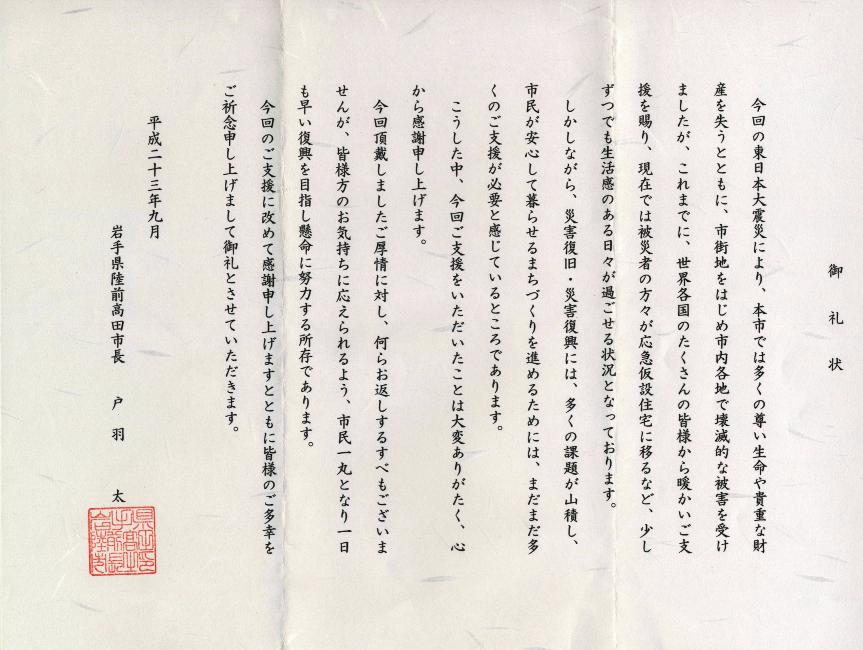 御礼状
今回の東日本大震災により、本市では多くの尊い生命や貴重な財
産を失うとともに、市街地をはじめ市内各地で壊滅的な被害を受け
ましたが、これまでに、世界各国のたくさんの皆様から暖かいご支
援を賜り、現在では被災者の方々が応急仮設住宅に移るなど、少し
ずつでも生活感のある日々が過ごせる状況となっております。
しかしながら、災害復旧・災害復興には、多くの課題が山積し、
市民が安心して暮らせるまちづくりを進めるためには、まだまだ多
くのご支援が必要と感じているところであります。
こうした中、今回ご支援をいただいたことは大変ありがたく、心
から感謝申し上げます。
今回頂戴しましたご厚情に対し、何らお返しするすべもございま
せんが、皆様方のお気持ちに応えられるよう、市民一丸となり一日
も早い復興を目指し懸命に努力する所存であります。
今回のご支援に改めて感謝申し上げますとともに皆様のご多幸を
ご祈念申し上げまして御礼とさせていただきます。
平成二十三年九月
岩手県陸前高田市長 戸羽 太